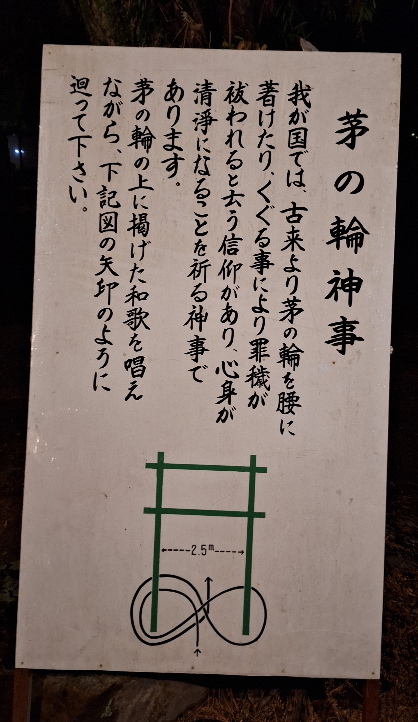 茅の輪神事
我が国では、古来より茅の輪を腰に
著けたり、くぐる事により罪穢が
祓われると云う信仰があり、心身が
清浄になることを祈る神事で
あります。
茅の輪の上に掲げた和歌を唱え
ながら、下記図の矢印のように
廻って下さい。
2.5m